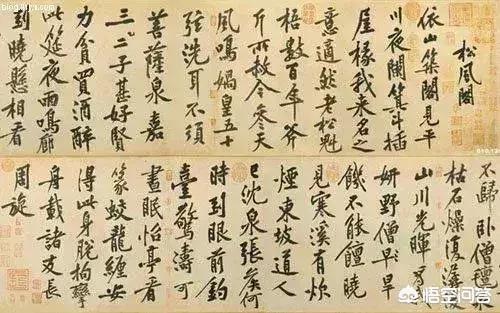 松風閣
依山築閣見平
川夜闌箕斗插
屋椽我來名之
意適然老松魁
梧數百年斧
斤所赦今參天
風鳴媧皇五十
弦洗耳不須
菩薩泉嘉
三二子甚好賢
力貧買酒醉
此筵夜雨鳴廊
到曉懸相看
不歸臥僧氈泉
枯石燥復潺湲
山川光暉為我
妍野僧早
饑不能饘曉
見寒溪有炊
煙東坡道人
已沈泉張侯何
時到眼前釣
臺驚濤可
晝眠怡亭看
篆蛟龍纏安
得此身脫拘攣
舟載諸友長
周旋
悟空问答